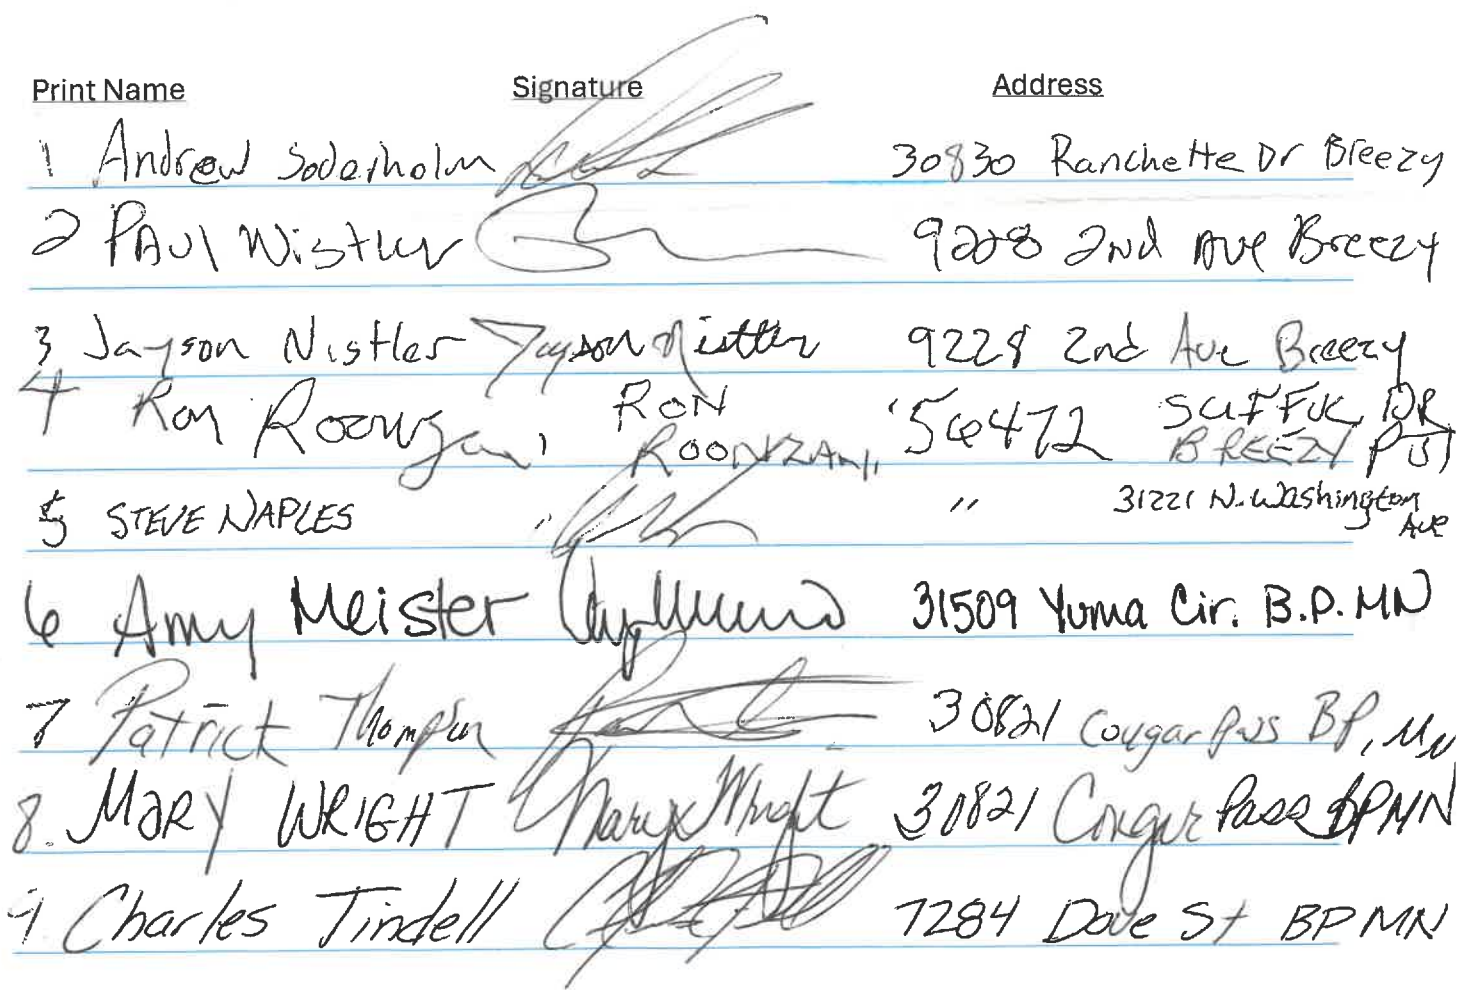 Print Name Signature Address
1 Andrew Soderholm 30830 Ranchette Dr Breezy
2 PAUL Nistler 9228 2nd Ave Breezy
3 Jayson Nistler Jayson Nistler 9228 2nd Ave Breezy
4 Ron RON 56472 SUFFUK DR
BREEZY
5 STEVE NAPLES " " 31221 N. Washington
Ave
6 Amy Meister 31509 Yuma Cir. B.P. MN
7 Patrick Thompson 30821 Cougar Pass BP, MN
8. MARY WRIGHT Mary Wright 30821 Cougar Pass BP MN
9 Charles Tindell 7284 Dove St BP MN